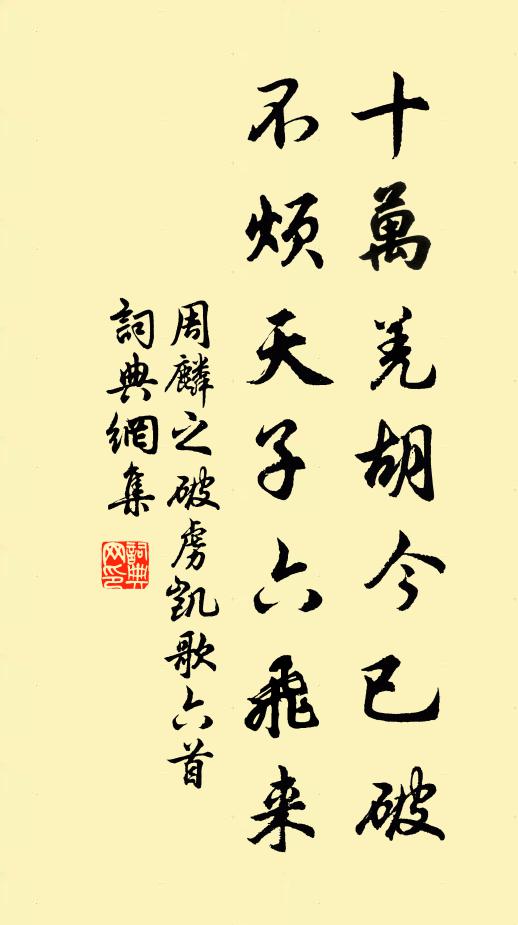 十萬羌胡今已破
不煩天子六飛来
周麟之破虜凱歌六首
詞典網集
詞典
网印